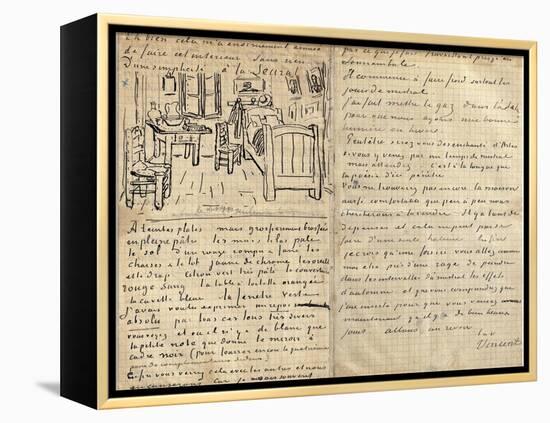 Eh bien cela m'a enormement amusé
de faire cet interieur sans rien
D'une simplicité à la Seurat
A teintes plates mais grossierement brossées
en pleine pâte les murs lilas pale
le sol d'un rouge rompu & fané les
chaises & le lit jaune de chrome les oreillers
et le drap citron vert très pâle la couverture
rouge sang la table à toilette orangée
la cuvette bleue la fenêtre verte
j'avais voulu exprimer un repos
absolu par tous ces tons très divers
vous voyez et où il n'y a de blanc que
la petite note que donne le miroir à
cadre noir (pour fourrer encore la quatrieme
paire de complementaires là dedans)
Enfin vous verrez cela avec les autres et nous
en causerons car je ne sais souvent
pas ce que je fais travaillant presqu'en
somnambule.
Il commence à faire froid surtout les
jours de mistral.
j'ai fait mettre le gaz dans l'atelier
pour que nous ayons une bonne
lumiere en hiver.
Peutêtre serez vous desenchanté d'Arles
si vous y venez par un temps de mistral
mais attendez.. C'est à la longue que
la poésie d'ici pénètre
Vous ne trouverez pas encore la maison
aussi confortable que peu à peu nous
chercherons à la rendre Il y a tant de
depenses et cela ne peut pas se
faire d'une seule haleine. Enfin
je crois qu'une fois ici vous allez comme
moi être pris d'une rage de peindre
dans les intervalles du mistral les effets
d'automne et que vous comprendrez que
j'aie insisté pour que vous veniez
maintenant qu'il y a de bien beaux
jours allons, au revoir
t.à v
Vincent